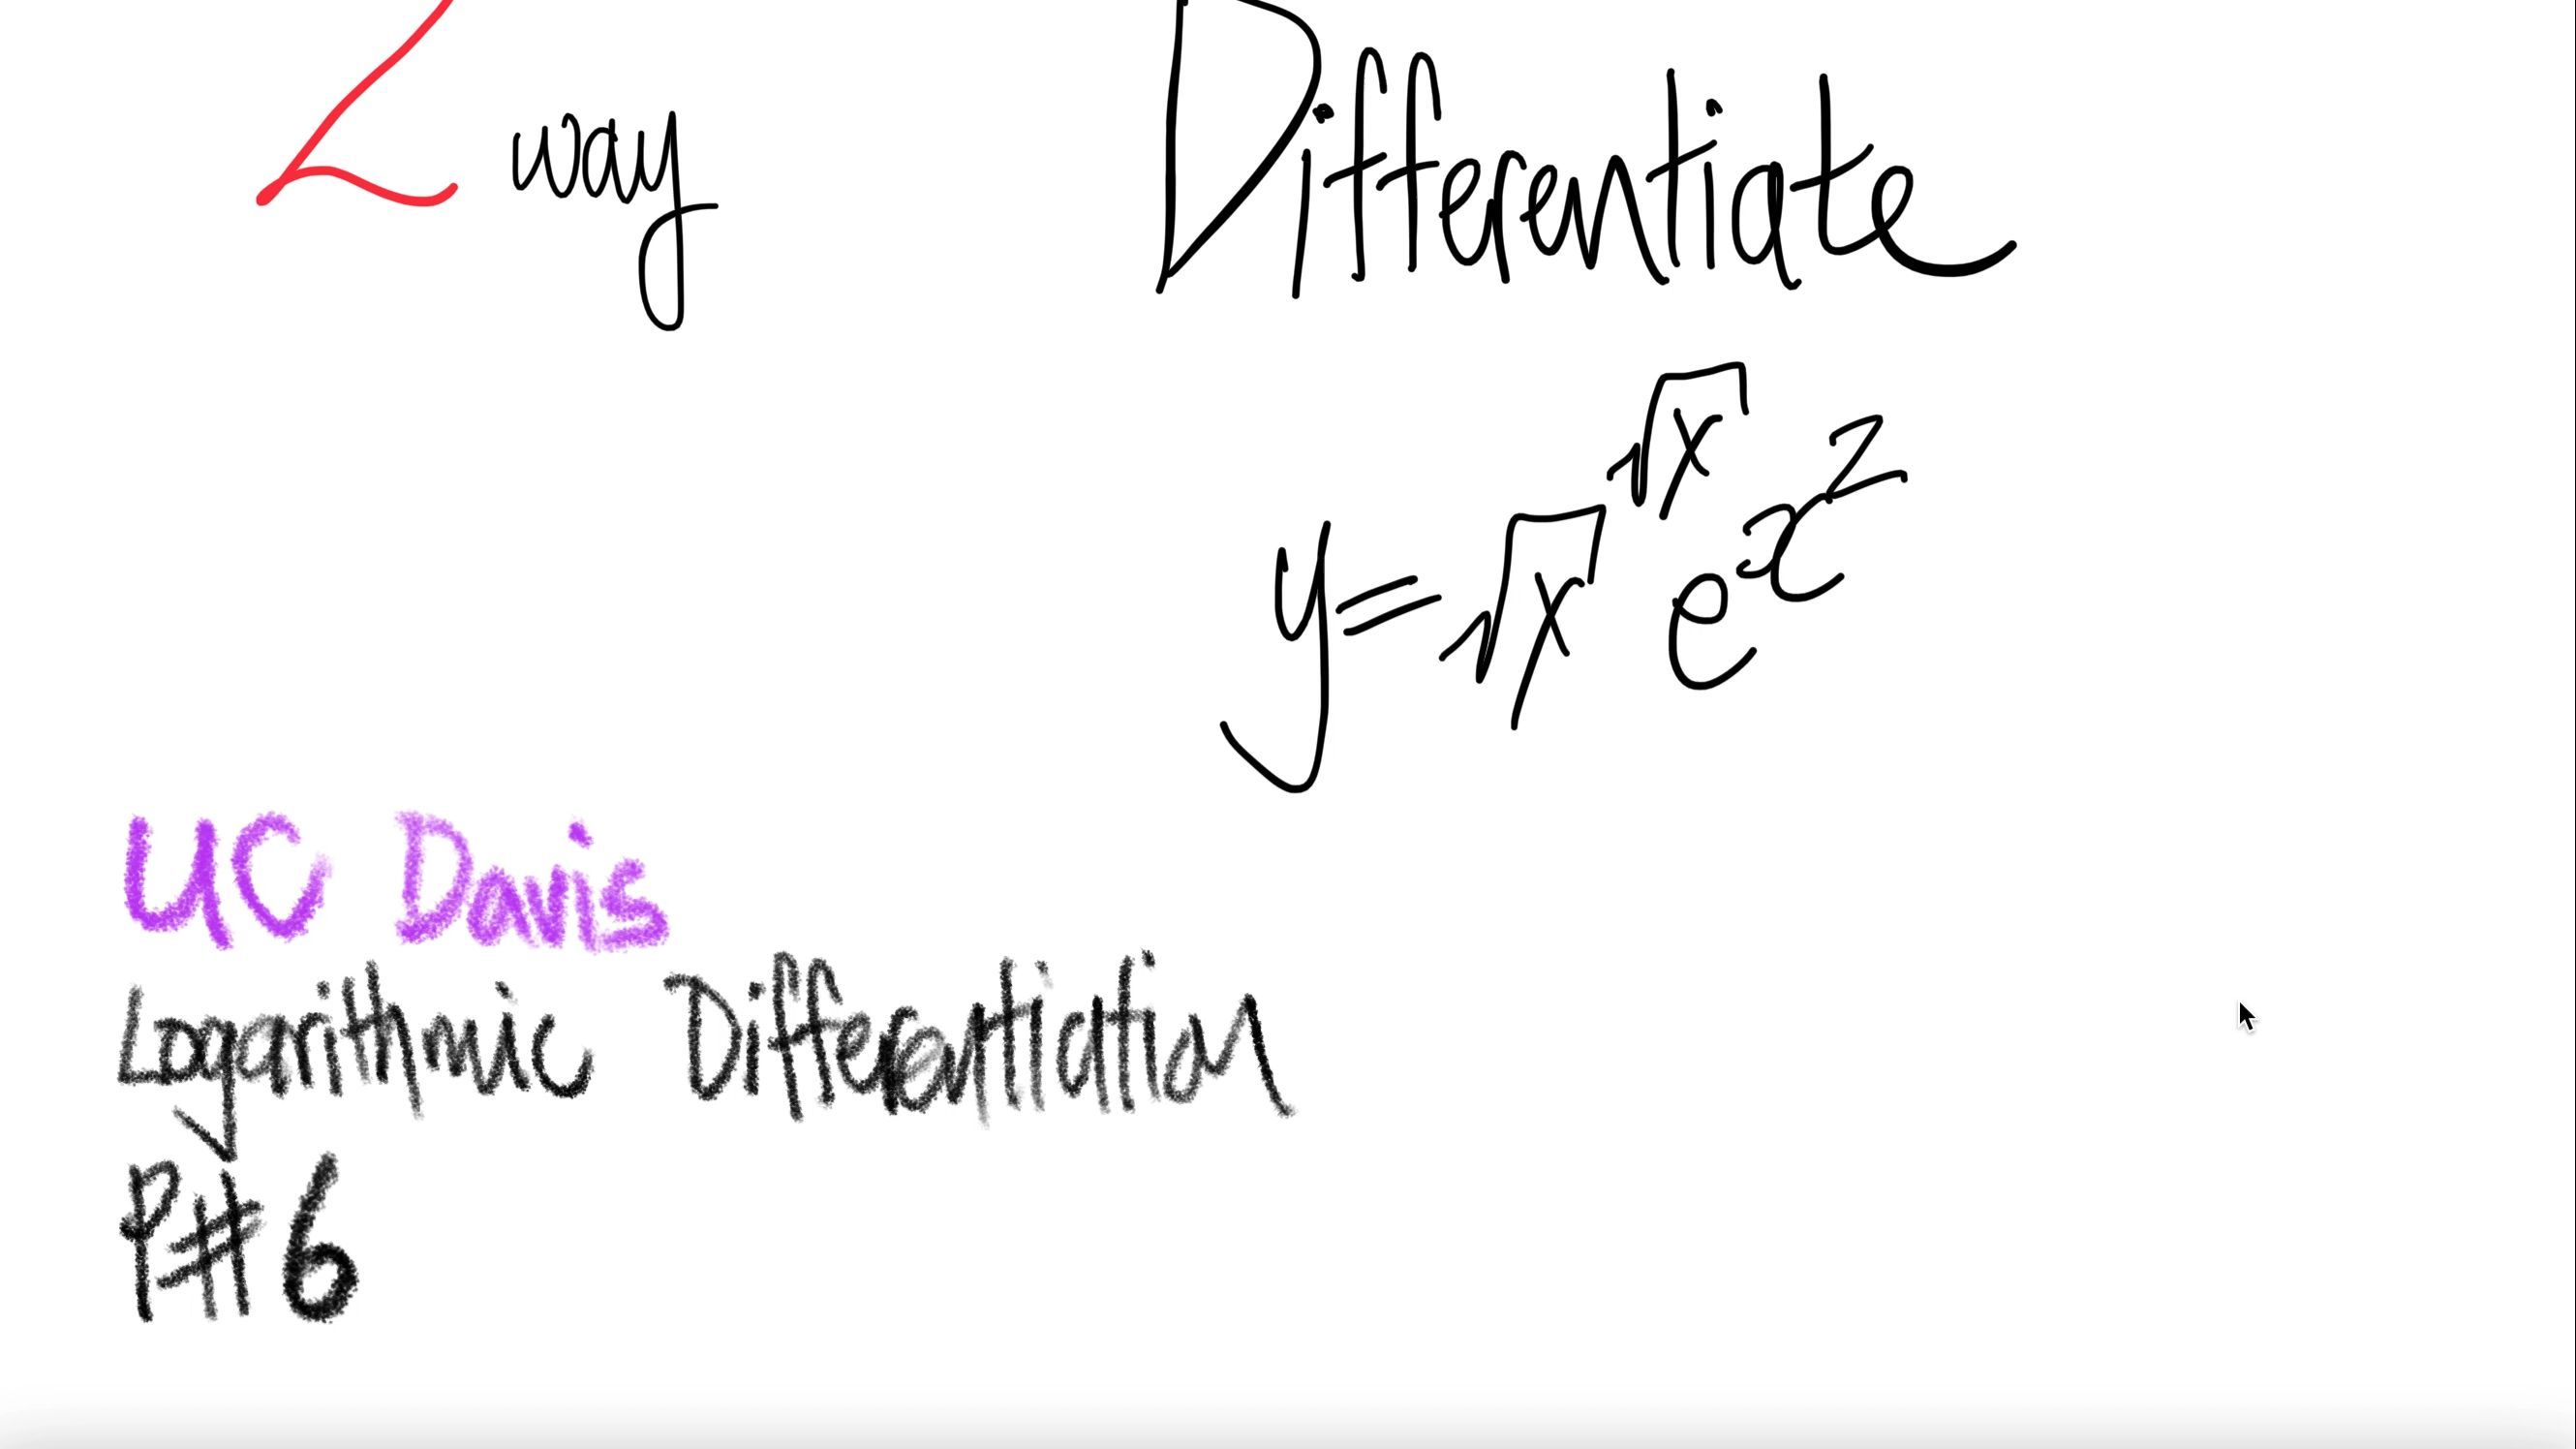 2 way
Differentiate
y=√x^√x e^x^2
UC Davis
Logarithmic Differentiation
P#6